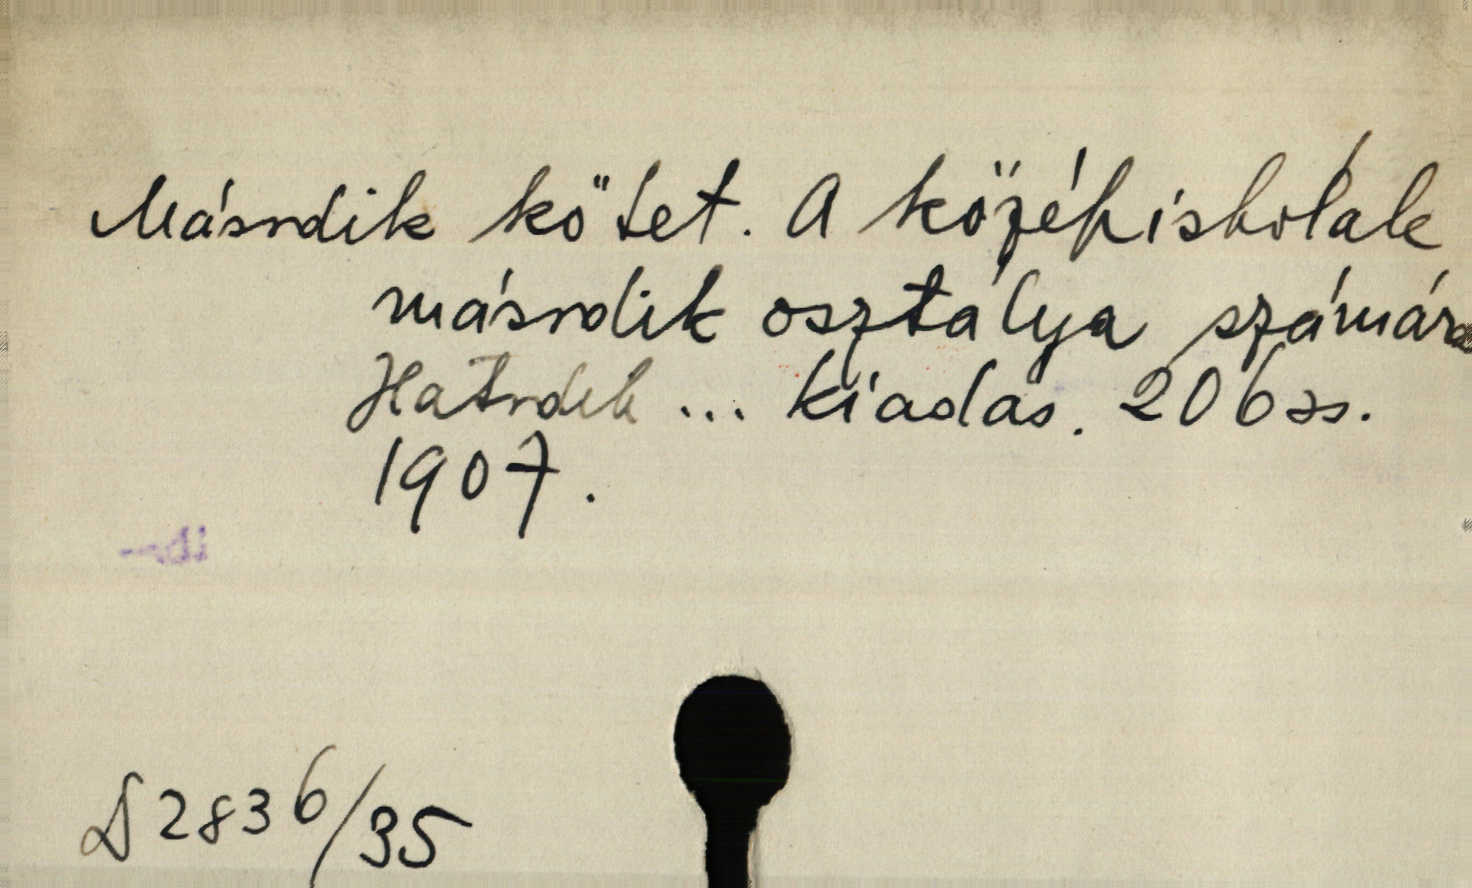 Második kötet. A középiskolák
második osztálya számára
Hatodik ... kiadás. 206 ss.
1907.
D 2836/35